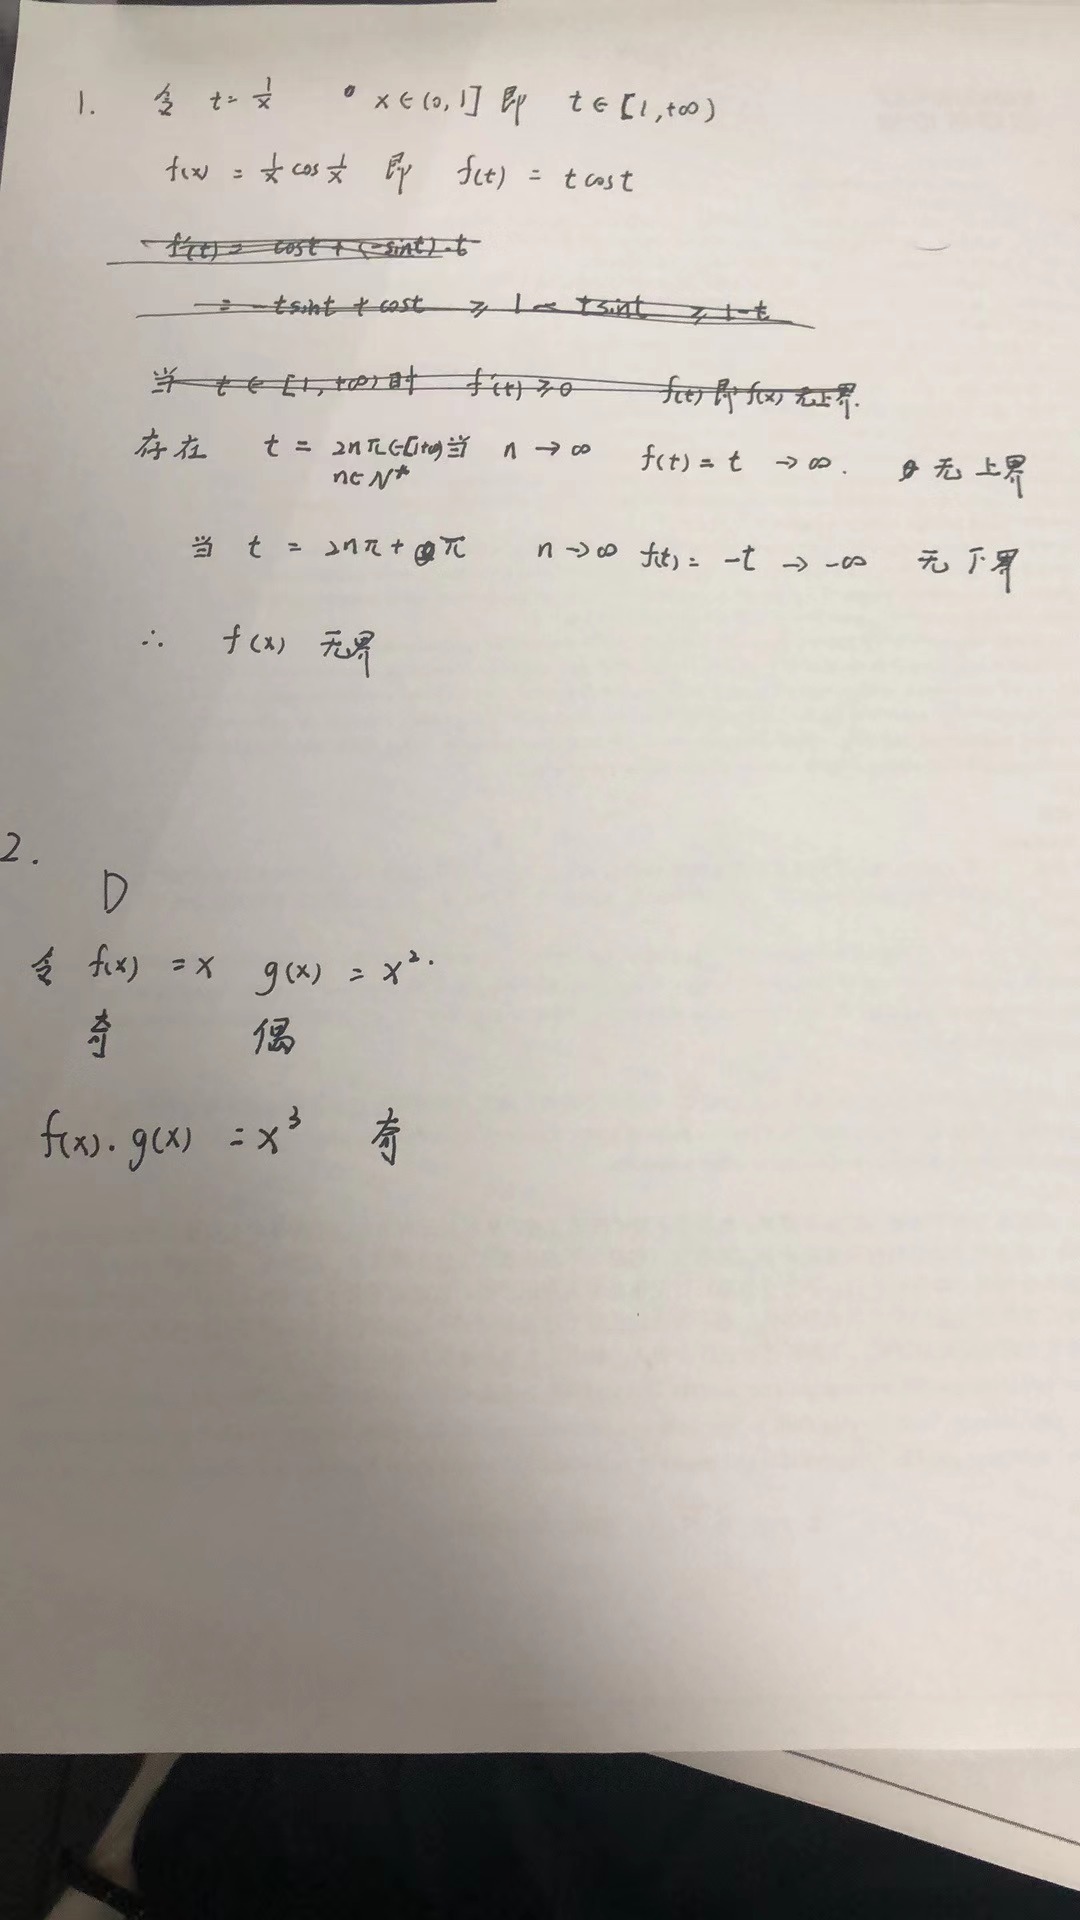 1. 令 t = 1/x x∈(0,1] 即 t∈[1,+∞)
f(x) = 1/x cos 1/x 即 f(t) = t cos t
f'(t) = cost + (-sint)·t
= -tsint + cost ≥ 1 - tsint ≥ 1-t
当 t∈[1,+∞)时 f'(t) ≥ 0 f(t)即f(x)无上界.
存在 t = 2nπ∈[1,+∞)当 n→∞ f(t) = t →∞. 无上界
n∈N*
当 t = 2nπ+π n→∞ f(t) = -t → -∞ 无下界
∴ f(x) 无界
2.
D
令 f(x) = x g(x) = x².
奇 偶
f(x)·g(x) = x³ 奇